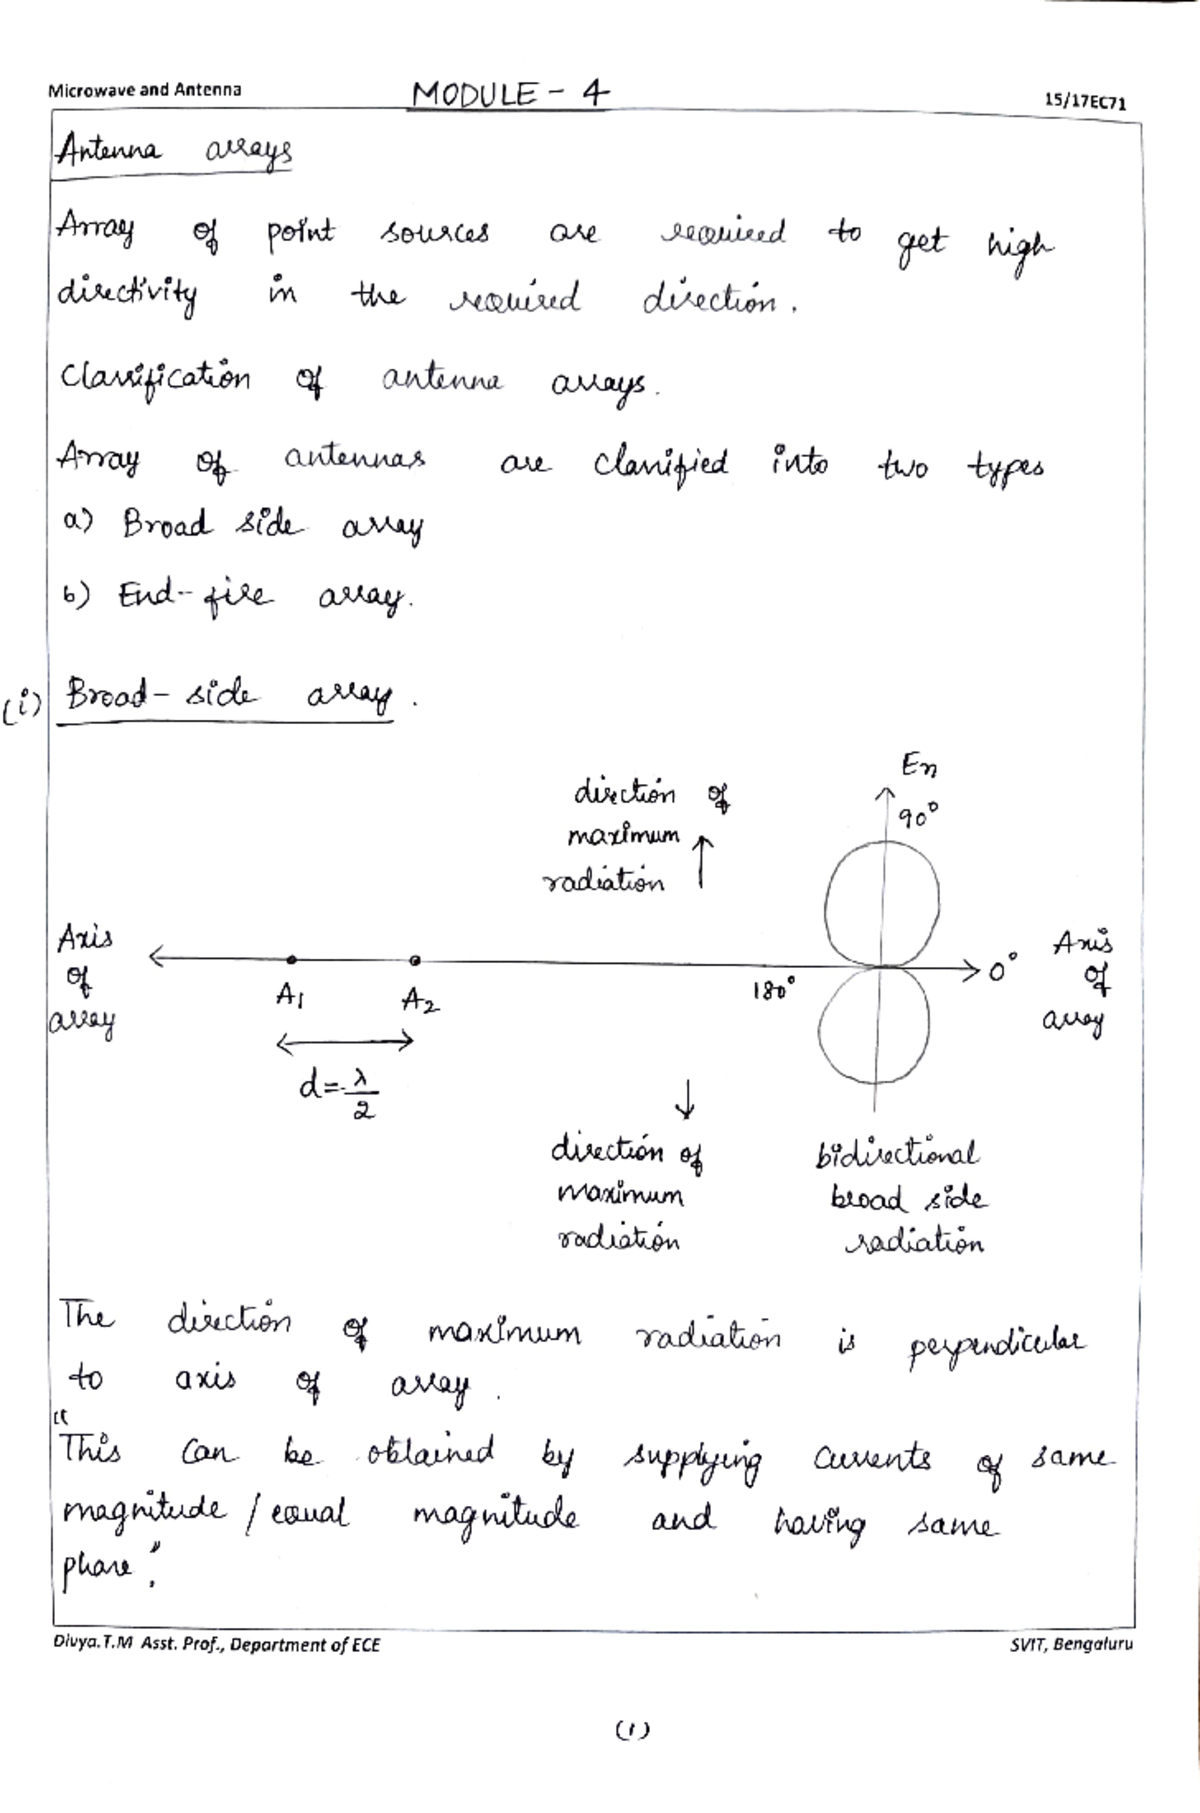 Microwave and Antenna MODULE - 4 15/17EC71
Antenna arrays
Array of point sources are required to get high
directivity in the required direction.
Classification of antenna arrays.
Array of antennas are classified into two types
a) Broad side array
b) End-fire array.
(i) Broad-side array.
En
90°
direction of
maximum
radiation
Axis
of
array
A1 A2
d = λ/2
180°
0°
Axis
of
array
direction of
maximum
radiation
bidirectional
broad side
radiation
The direction of maximum radiation is perpendicular
to axis of array.
"
This can be obtained by supplying currents of same
magnitude / equal magnitude and having same
phase".
Divya.T.M Asst. Prof., Department of ECE SVIT, Bengaluru
(1)